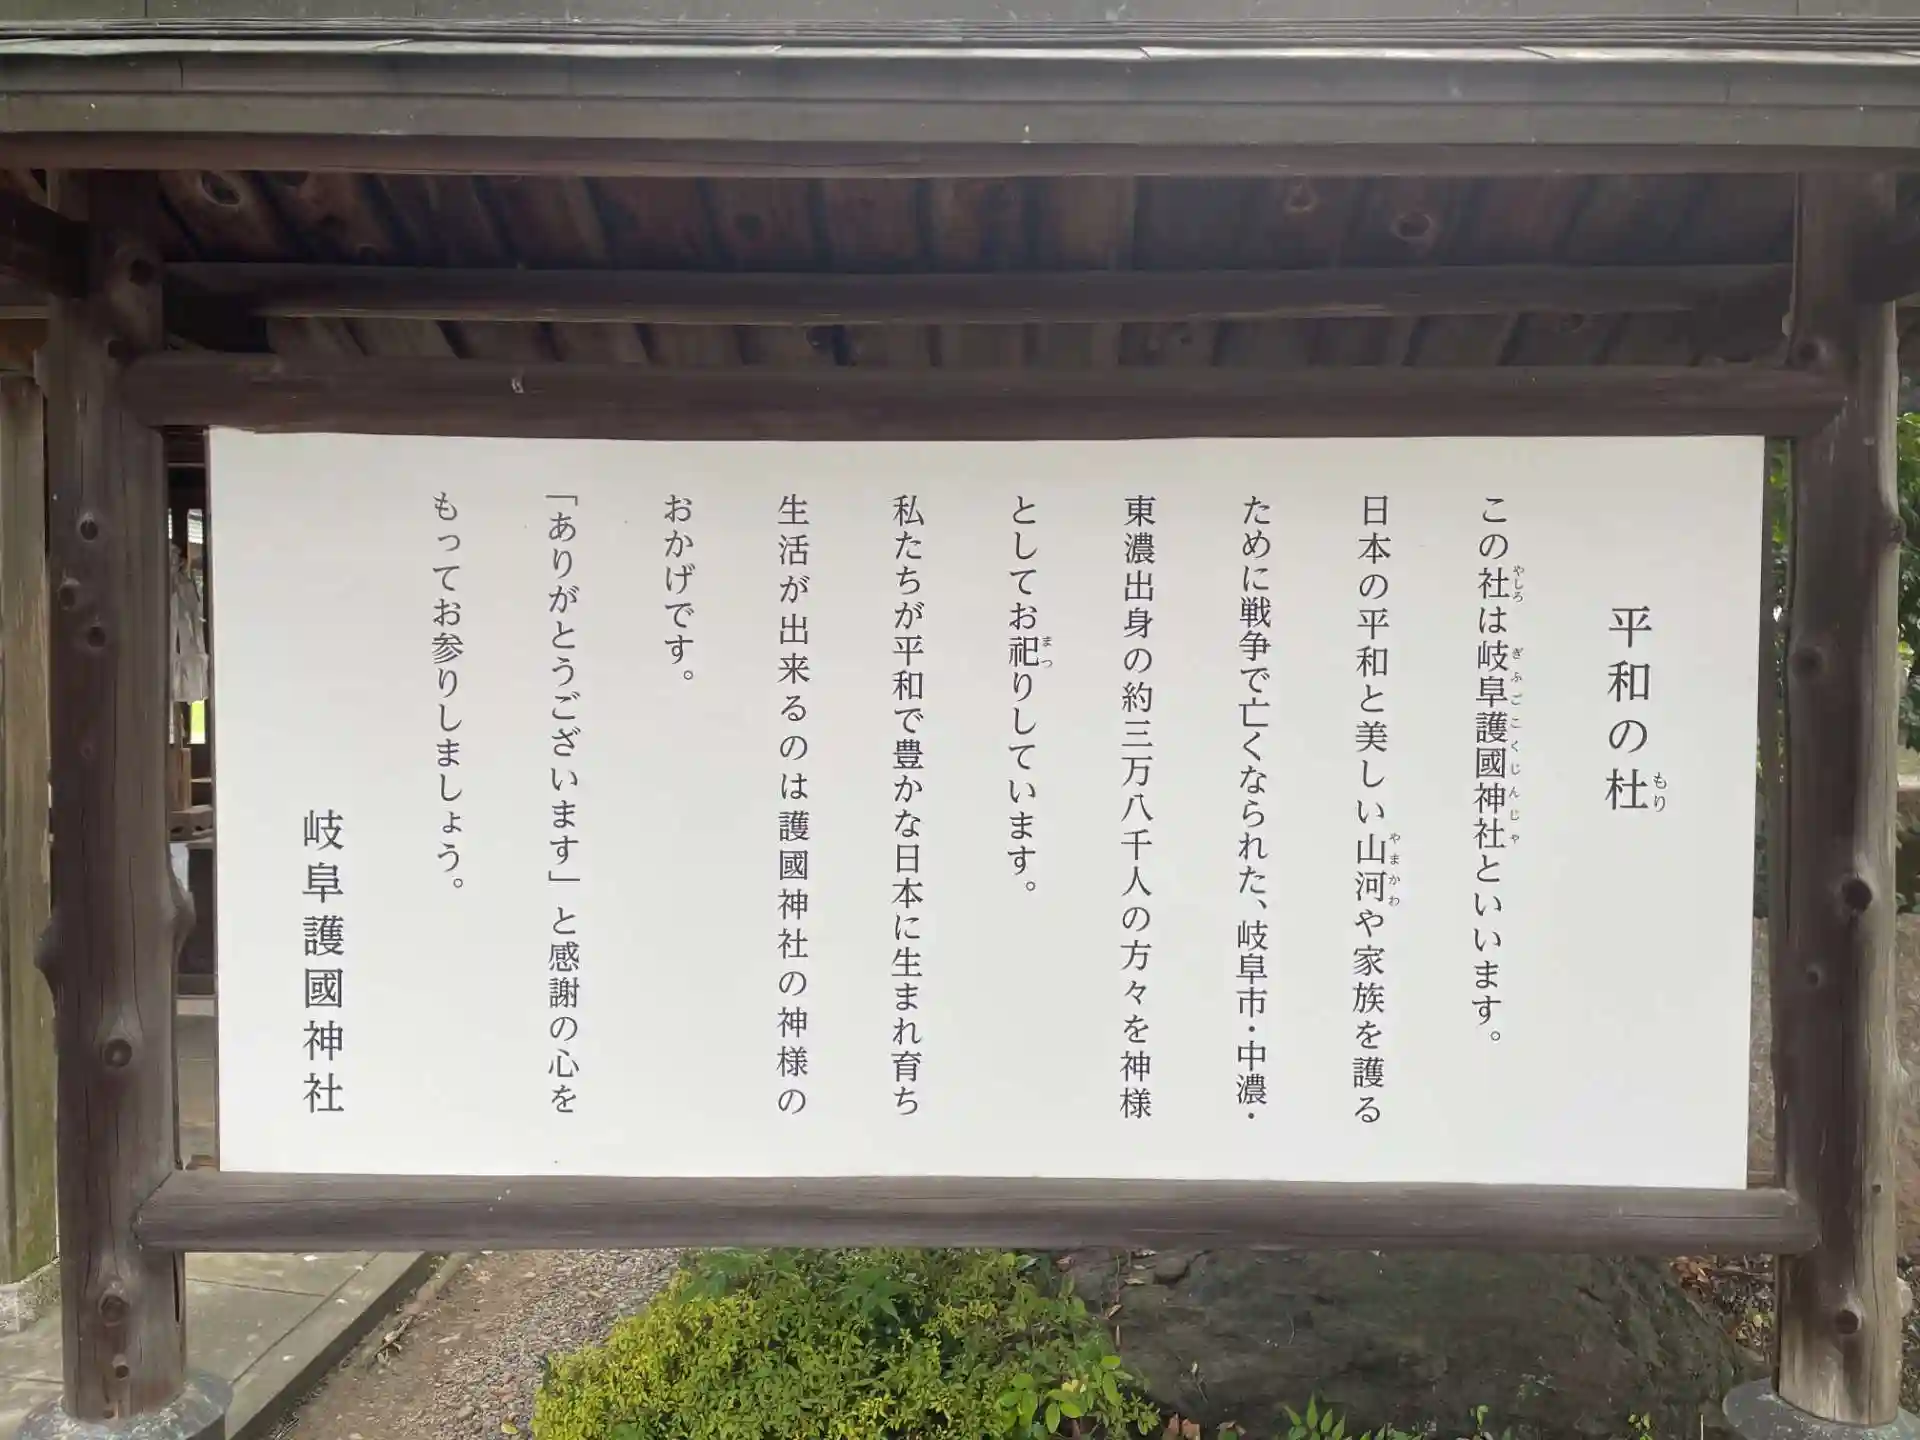 平和の杜
もり
この社は岐阜護國神社といいます。
やしろ
ぎふごこくじんじゃ
日本の平和と美しい山河や家族を護る
やまかわ
ために戦争で亡くなられた、岐阜市・中濃・
東濃出身の約三万八千人の方々を神様
としてお祀りしています。
まつ
私たちが平和で豊かな日本に生まれ育ち
生活が出来るのは護國神社の神様の
おかげです。
「ありがとうございます」と感謝の心を
もってお参りしましょう。
岐阜護國神社